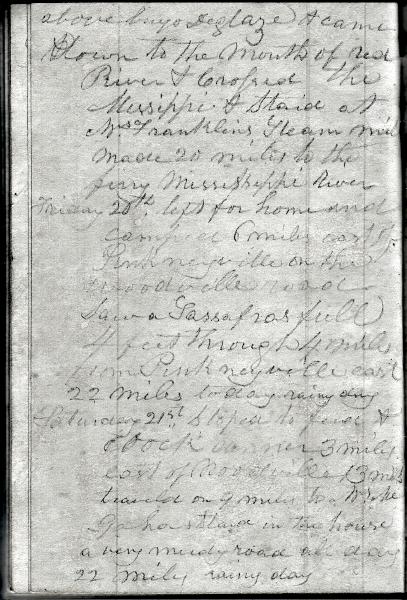 above bayo Deglaze & came
down to the Mouth of red
River & Crossed the
Missippi & Staid at
Mrs Franklins Steam mill
made 20 miles to the
ferry Mississippi River
Friday 20th left for home and
camped 6 miles east of
Pinkneyville on the
Woodville road
Saw a Sassafras full
4 feet through 4 miles
from Pinkneyville east
22 miles today rainy day
Saturday 21st Stoped to feed &
Coock dinner 3 miles
east of Woodville 13 miles
traveld on 9 miles to a Mr
Gehas Staid in the house
a very mudy road all day
22 miles rainy day